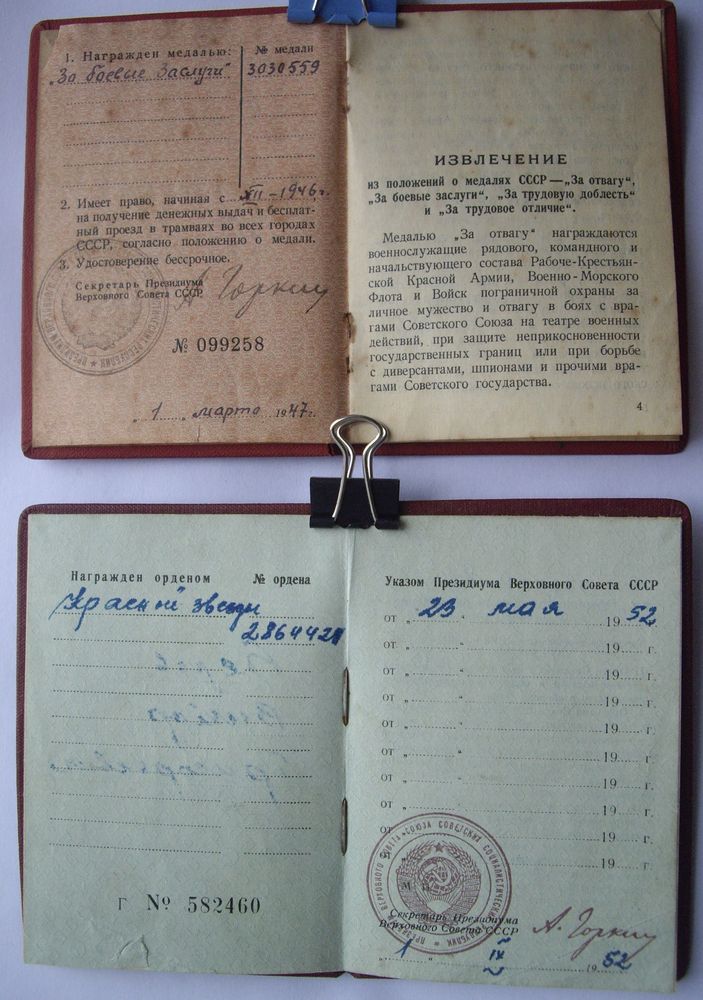 1. Награжден медалью: № медали
„За боевые заслуги" 3030559
2. Имеет право, начиная с XII-1946г.
на получение денежных выдач и бесплат-
ный проезд в трамваях во всех городах
СССР, согласно положению о медали.
3. Удостоверение бессрочное.
Секретарь Президиума
Верховного Совета СССР
А. Горкин
№ 099258
„1" марта 1947г.
ИЗВЛЕЧЕНИЕ
из положений о медалях СССР—„За отвагу",
„За боевые заслуги", „За трудовую доблесть"
и „За трудовое отличие".
Медалью „За отвагу" награждаются
военнослужащие рядового, командного и
начальствующего состава Рабоче-Крестьян-
ской Красной Армии, Военно-Морского
Флота и Войск пограничной охраны за
личное мужество и отвагу в боях с вра-
гами Советского Союза на театре военных
действий, при защите неприкосновенности
государственных границ или при борьбе
с диверсантами, шпионами и прочими вра-
гами Советского государства.
4
Награжден орденом № ордена
Красной звезды
2864421
Г № 582460
Указом Президиума Верховного Совета СССР
от „23" мая 1952
от „ " 19 г.
от „ " 19 г.
от „ " 19 г.
от „ " 19 г.
от „ " 19 г.
от „ " 19 г.
от „ " 19 г.
от „ " 19 г.
от „ " 19 г.
М. П.
Секретарь Президиума
Верховного Совета СССР
А. Горкин
„1" IX 1952